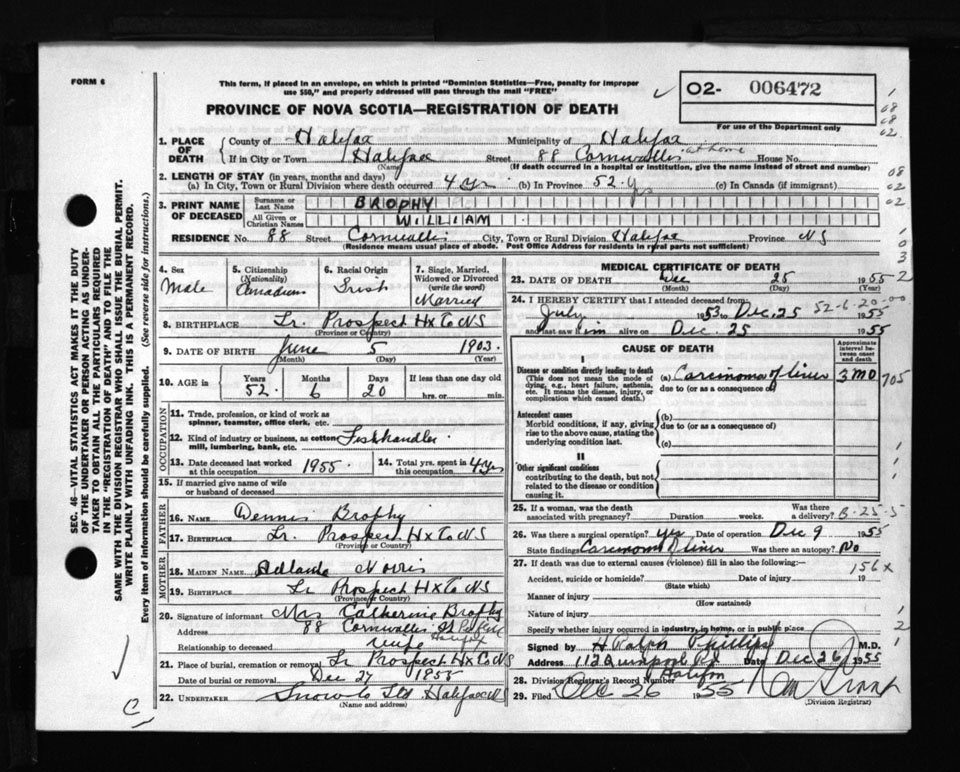 FORM 6
This form, if placed in an envelope, on which is printed "Dominion Statistics—Free, penalty for improper
use $50," and properly addressed will pass through the mail "FREE"
PROVINCE OF NOVA SCOTIA—REGISTRATION OF DEATH
02- 006472
For use of the Department only
1. PLACE OF DEATH { County of Halifax Municipality of Halifax
If in City or Town Halifax Street 88 Cornwallis at home House No.
(Name) (If death occurred in a hospital or institution, give the name instead of street and number)
2. LENGTH OF STAY (in years, months and days)
(a) In City, Town or Rural Division where death occurred 4 yrs (b) In Province 52 yrs (c) In Canada (if immigrant)
3. PRINT NAME OF DECEASED { Surname or Last Name BROPHY
All Given or Christian Names WILLIAM
RESIDENCE No. 88 Street Cornwallis City, Town or Rural Division Halifax Province NS
(Residence means usual place of abode. Post Office Address for residents in rural parts not sufficient)
4. Sex Male
5. Citizenship (Nationality) Canadian
6. Racial Origin Irish
7. Single, Married, Widowed or Divorced (write the word) Married
8. BIRTHPLACE Lr. Prospect Hx Co NS
(Province or Country)
9. DATE OF BIRTH June 5 1903
(Month) (Day) (Year)
10. AGE in { Years 52 Months 6 Days 20 If less than one day old hrs. or min.
OCCUPATION
11. Trade, profession, or kind of work as
spinner, teamster, office clerk, etc.
12. Kind of industry or business, as cotton
mill, lumbering, bank, etc. Fishhandler
13. Date deceased last worked
at this occupation 1955 14. Total yrs. spent in
this occupation 4 yrs
15. If married give name of wife
or husband of deceased
FATHER
16. NAME Dennis Brophy
17. BIRTHPLACE Lr. Prospect Hx Co NS
(Province or Country)
MOTHER
18. MAIDEN NAME Adlaide Norris
19. BIRTHPLACE Lr Prospect Hx Co NS
(Province or Country)
20. Signature of informant Mrs Catherine Brophy
Address 88 Cornwallis St Halifax
Relationship to deceased wife
21. Place of burial, cremation or removal Lr Prospect Hx Co NS
Date of burial or removal Dec 27 1955
22. UNDERTAKER Snow Co Ltd Halifax
(Name and address)
MEDICAL CERTIFICATE OF DEATH
23. DATE OF DEATH Dec 25 1955
(Month) (Day) (Year)
24. I HEREBY CERTIFY that I attended deceased from
July 1953 to Dec. 25 1955
52-6-20-00
and last saw him alive on Dec. 25 1955
CAUSE OF DEATH
Approximate interval between onset and death
I
Disease or condition directly leading to death
(This does not mean the mode of dying, e.g., heart failure, asthenia, etc. It means the disease, injury, or complication which caused death.)
(a) Carcinoma of liver 3 MO 705
due to (or as a consequence of)
Antecedent causes
Morbid conditions, if any, giving rise to the above cause, stating the underlying condition last.
(b)
due to (or as a consequence of)
(c)
II
Other significant conditions
contributing to the death, but not related to the disease or condition causing it.
25. If a woman, was the death
associated with pregnancy? Duration weeks. Was there a delivery? B-25-5
26. Was there a surgical operation? yes Date of operation Dec 9 1955
State findings Carcinoma of liver Was there an autopsy? No
27. If death was due to external causes (violence) fill in also the following:—
156x
Accident, suicide or homicide? Date of injury 19
(State which)
Manner of injury
(How sustained)
Nature of injury
Specify whether injury occurred in industry, in home, or in public place
Signed by H Ralph Phillips M.D.
Address 112 Quinpool Rd Halifax Date Dec 26 1955
28. Division Registrar's Record Number
29. Filed Dec 26 1955
(Division Registrar)
SEC. 46—VITAL STATISTICS ACT MAKES IT THE DUTY
OF THE UNDERTAKER OR PERSON ACTING AS UNDER-
TAKER TO OBTAIN ALL THE PARTICULARS REQUIRED
IN THE "REGISTRATION OF DEATH" AND TO FILE THE
SAME WITH THE DIVISION REGISTRAR WHO SHALL ISSUE THE BURIAL PERMIT.
WRITE PLAINLY WITH UNFADING INK. THIS IS A PERMANENT RECORD.
Every item of information should be carefully supplied. (See reverse side for instructions.)